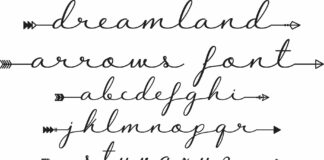 dreamland
arrows font
abcdefghi
jklmnopqr